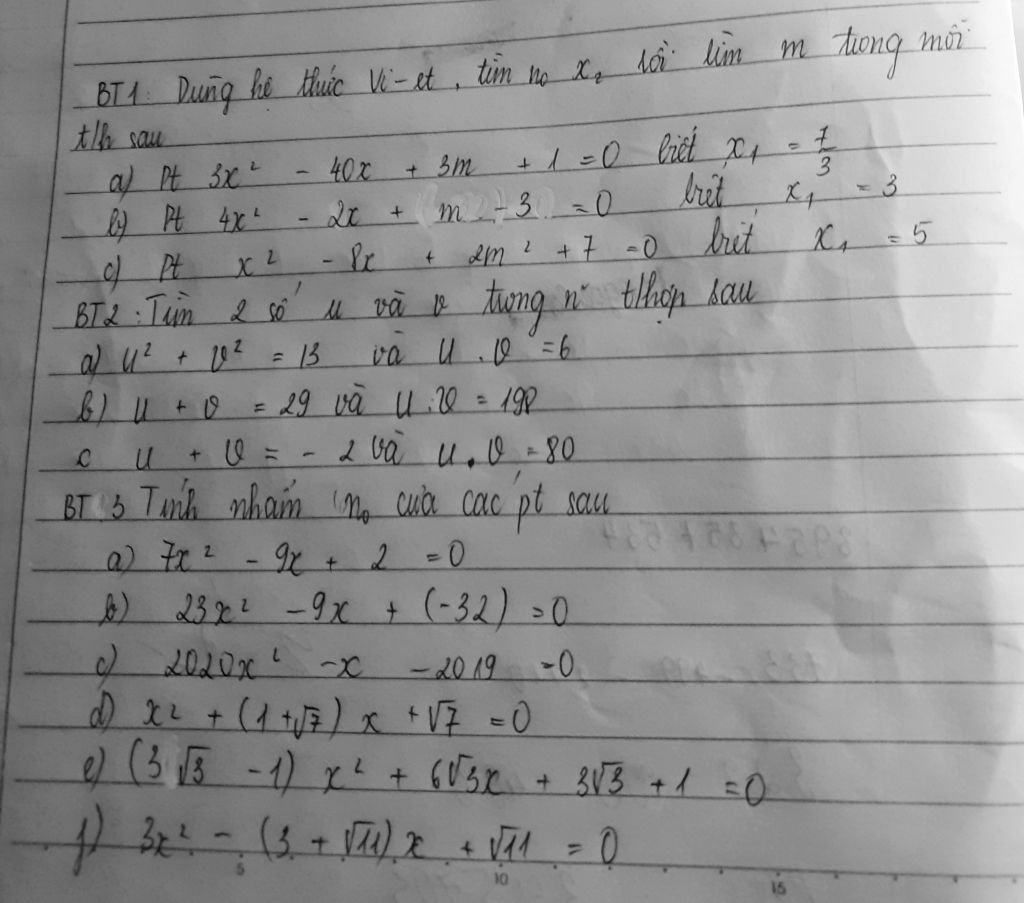 BT1: Dùng hệ thức Vi-et, tìm no x₂ rồi tìm m trong mỗi
t/h sau
a) Pt 3x² - 40x + 3m + 1 = 0 biết x₁ = 7/3
b) Pt 4x² - 2x + m - 3 = 0 biết x₁ = 3
c) Pt x² - 8x + 2m² + 7 = 0 biết x₁ = 5
BT2: Tìm 2 số u và v trong n~ t/hợp sau
a) u² + v² = 13 và u . v = 6
b) u + v = 29 và u.v = 198
c u + v = - 2 và u . v = 80
BT 3 Tính nhẩm no của các pt sau
a) 7x² - 9x + 2 = 0
b) 23x² - 9x + (-32) = 0
c) 2020x² - x - 2019 = 0
d) x² + (1 + √7) x + √7 = 0
e) (3√3 - 1) x² + 6√3x + 3√3 + 1 = 0
f) 3x² - (3 + √11) x + √11 = 0
5 10 15